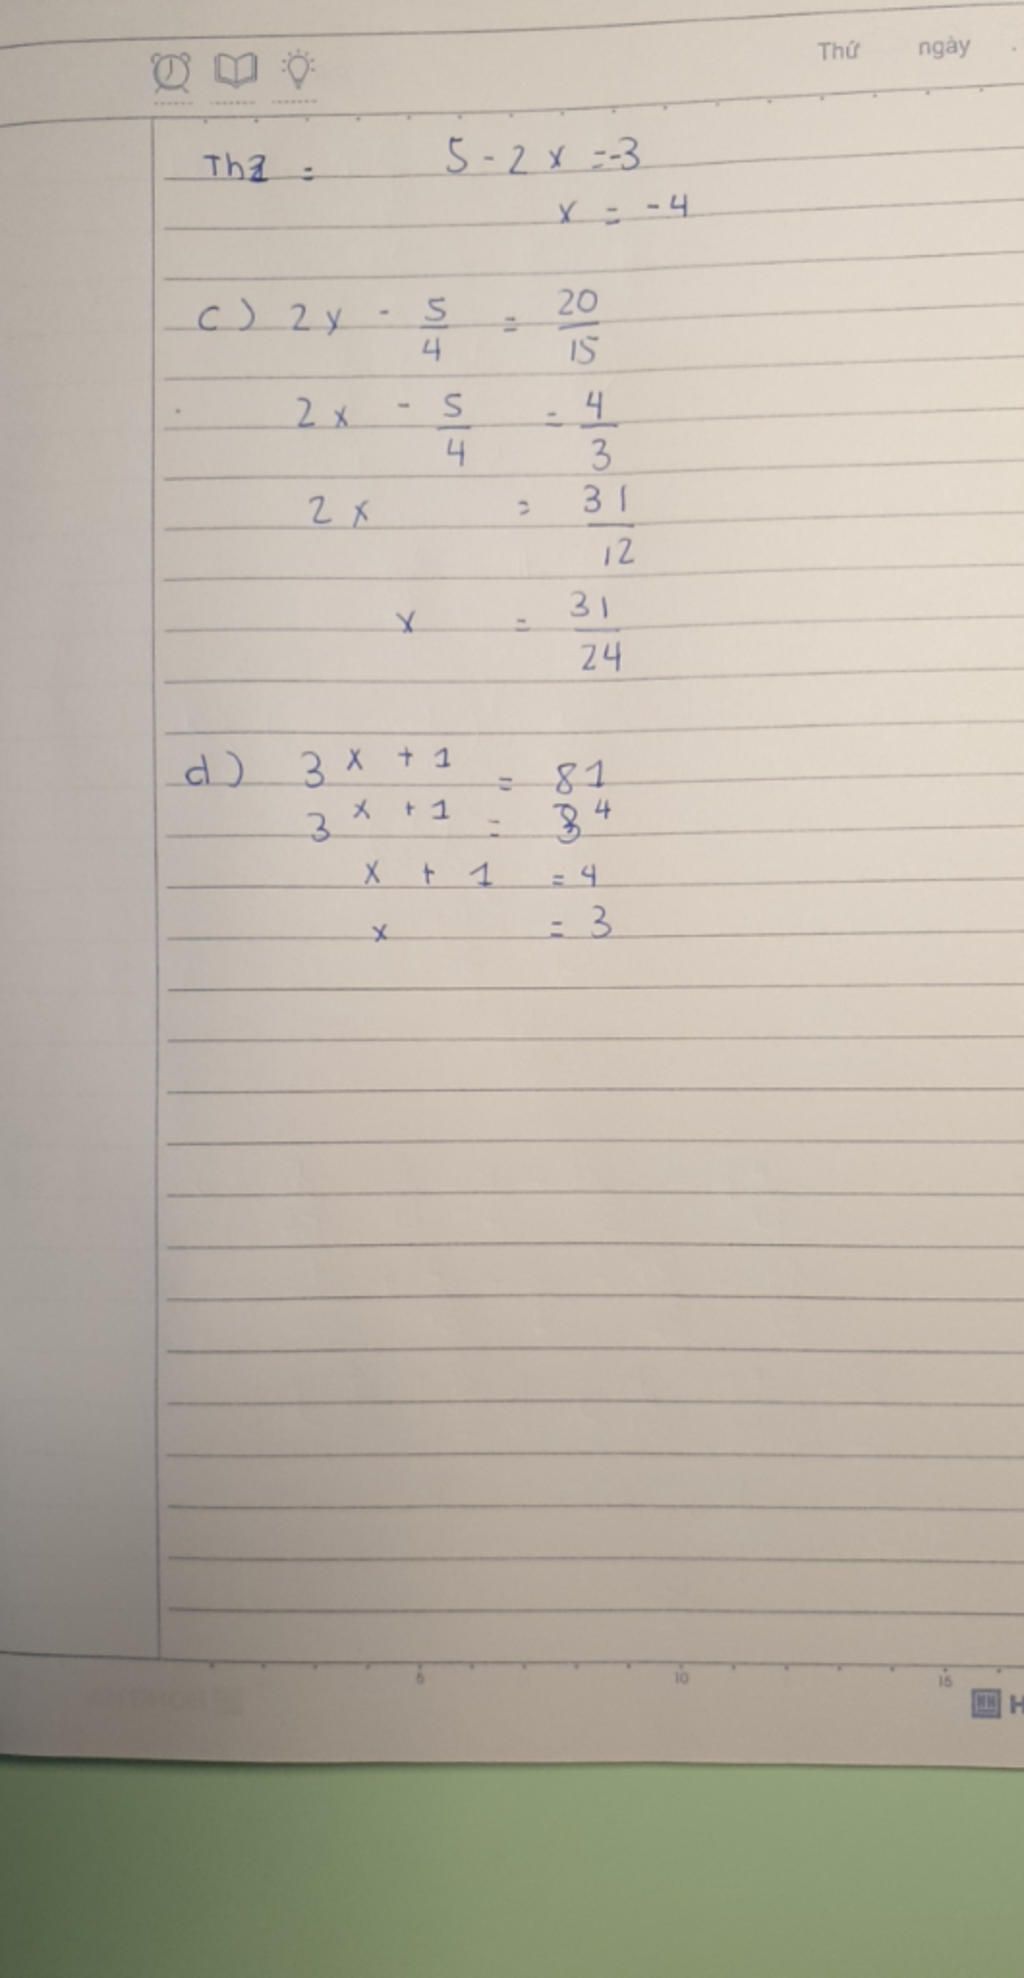 Thứ ngày .
Th2 : 5 - 2x = -3
x = -4
c) 2x - 5/4 = 20/15
2x - 5/4 = 4/3
2x = 31/12
x = 31/24
d) 3^x + 1 = 81
3^x + 1 = 3^4
x + 1 = 4
x = 3
5 10 15
H